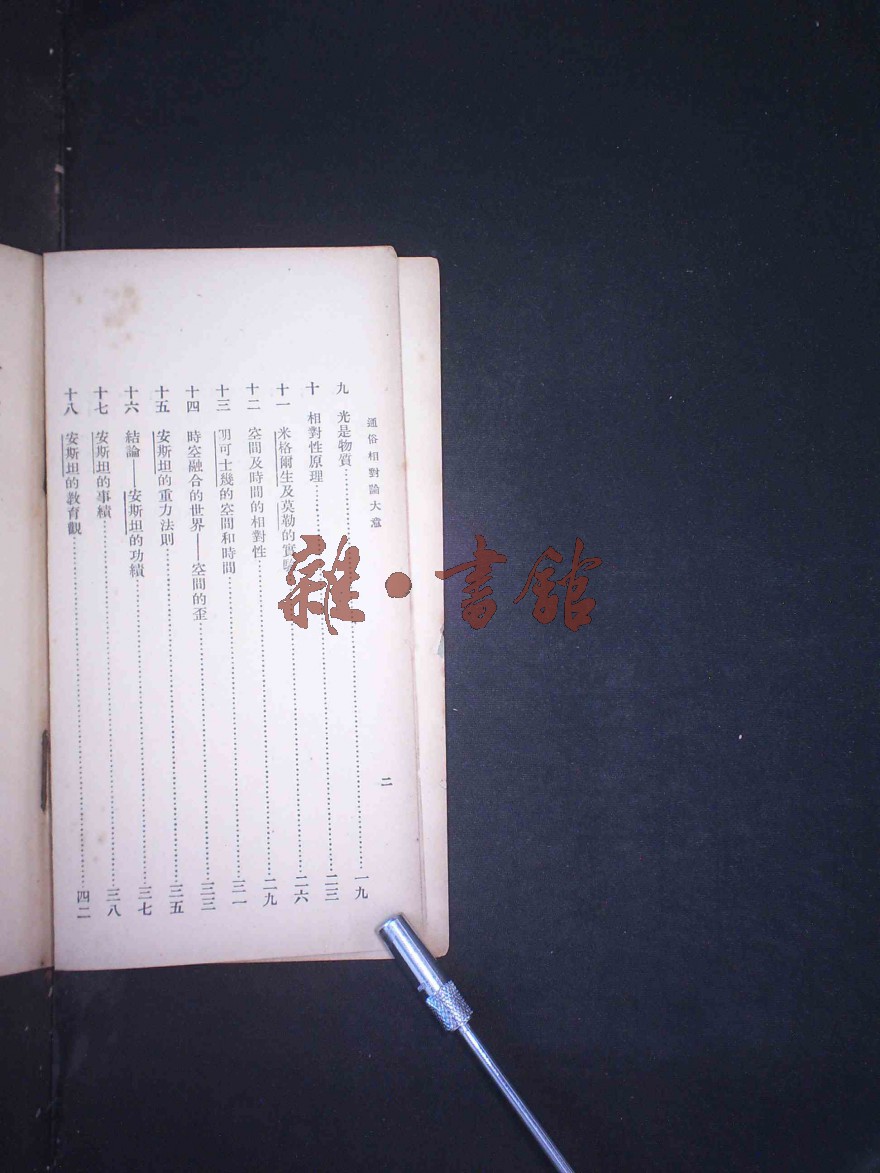 通俗相對論大意
二
九 光是物質……一九
十 相對性原理……二三
十一 米格爾生及莫勒的實驗……二六
十二 空間及時間的相對性……二九
十三 明可士幾的空間和時間……三一
十四 時空融合的世界——空間的歪……三三
十五 安斯坦的重力法則……三五
十六 結論——安斯坦的功績……三七
十七 安斯坦的事績……三八
十八 安斯坦的教育觀……四二
雜·書館